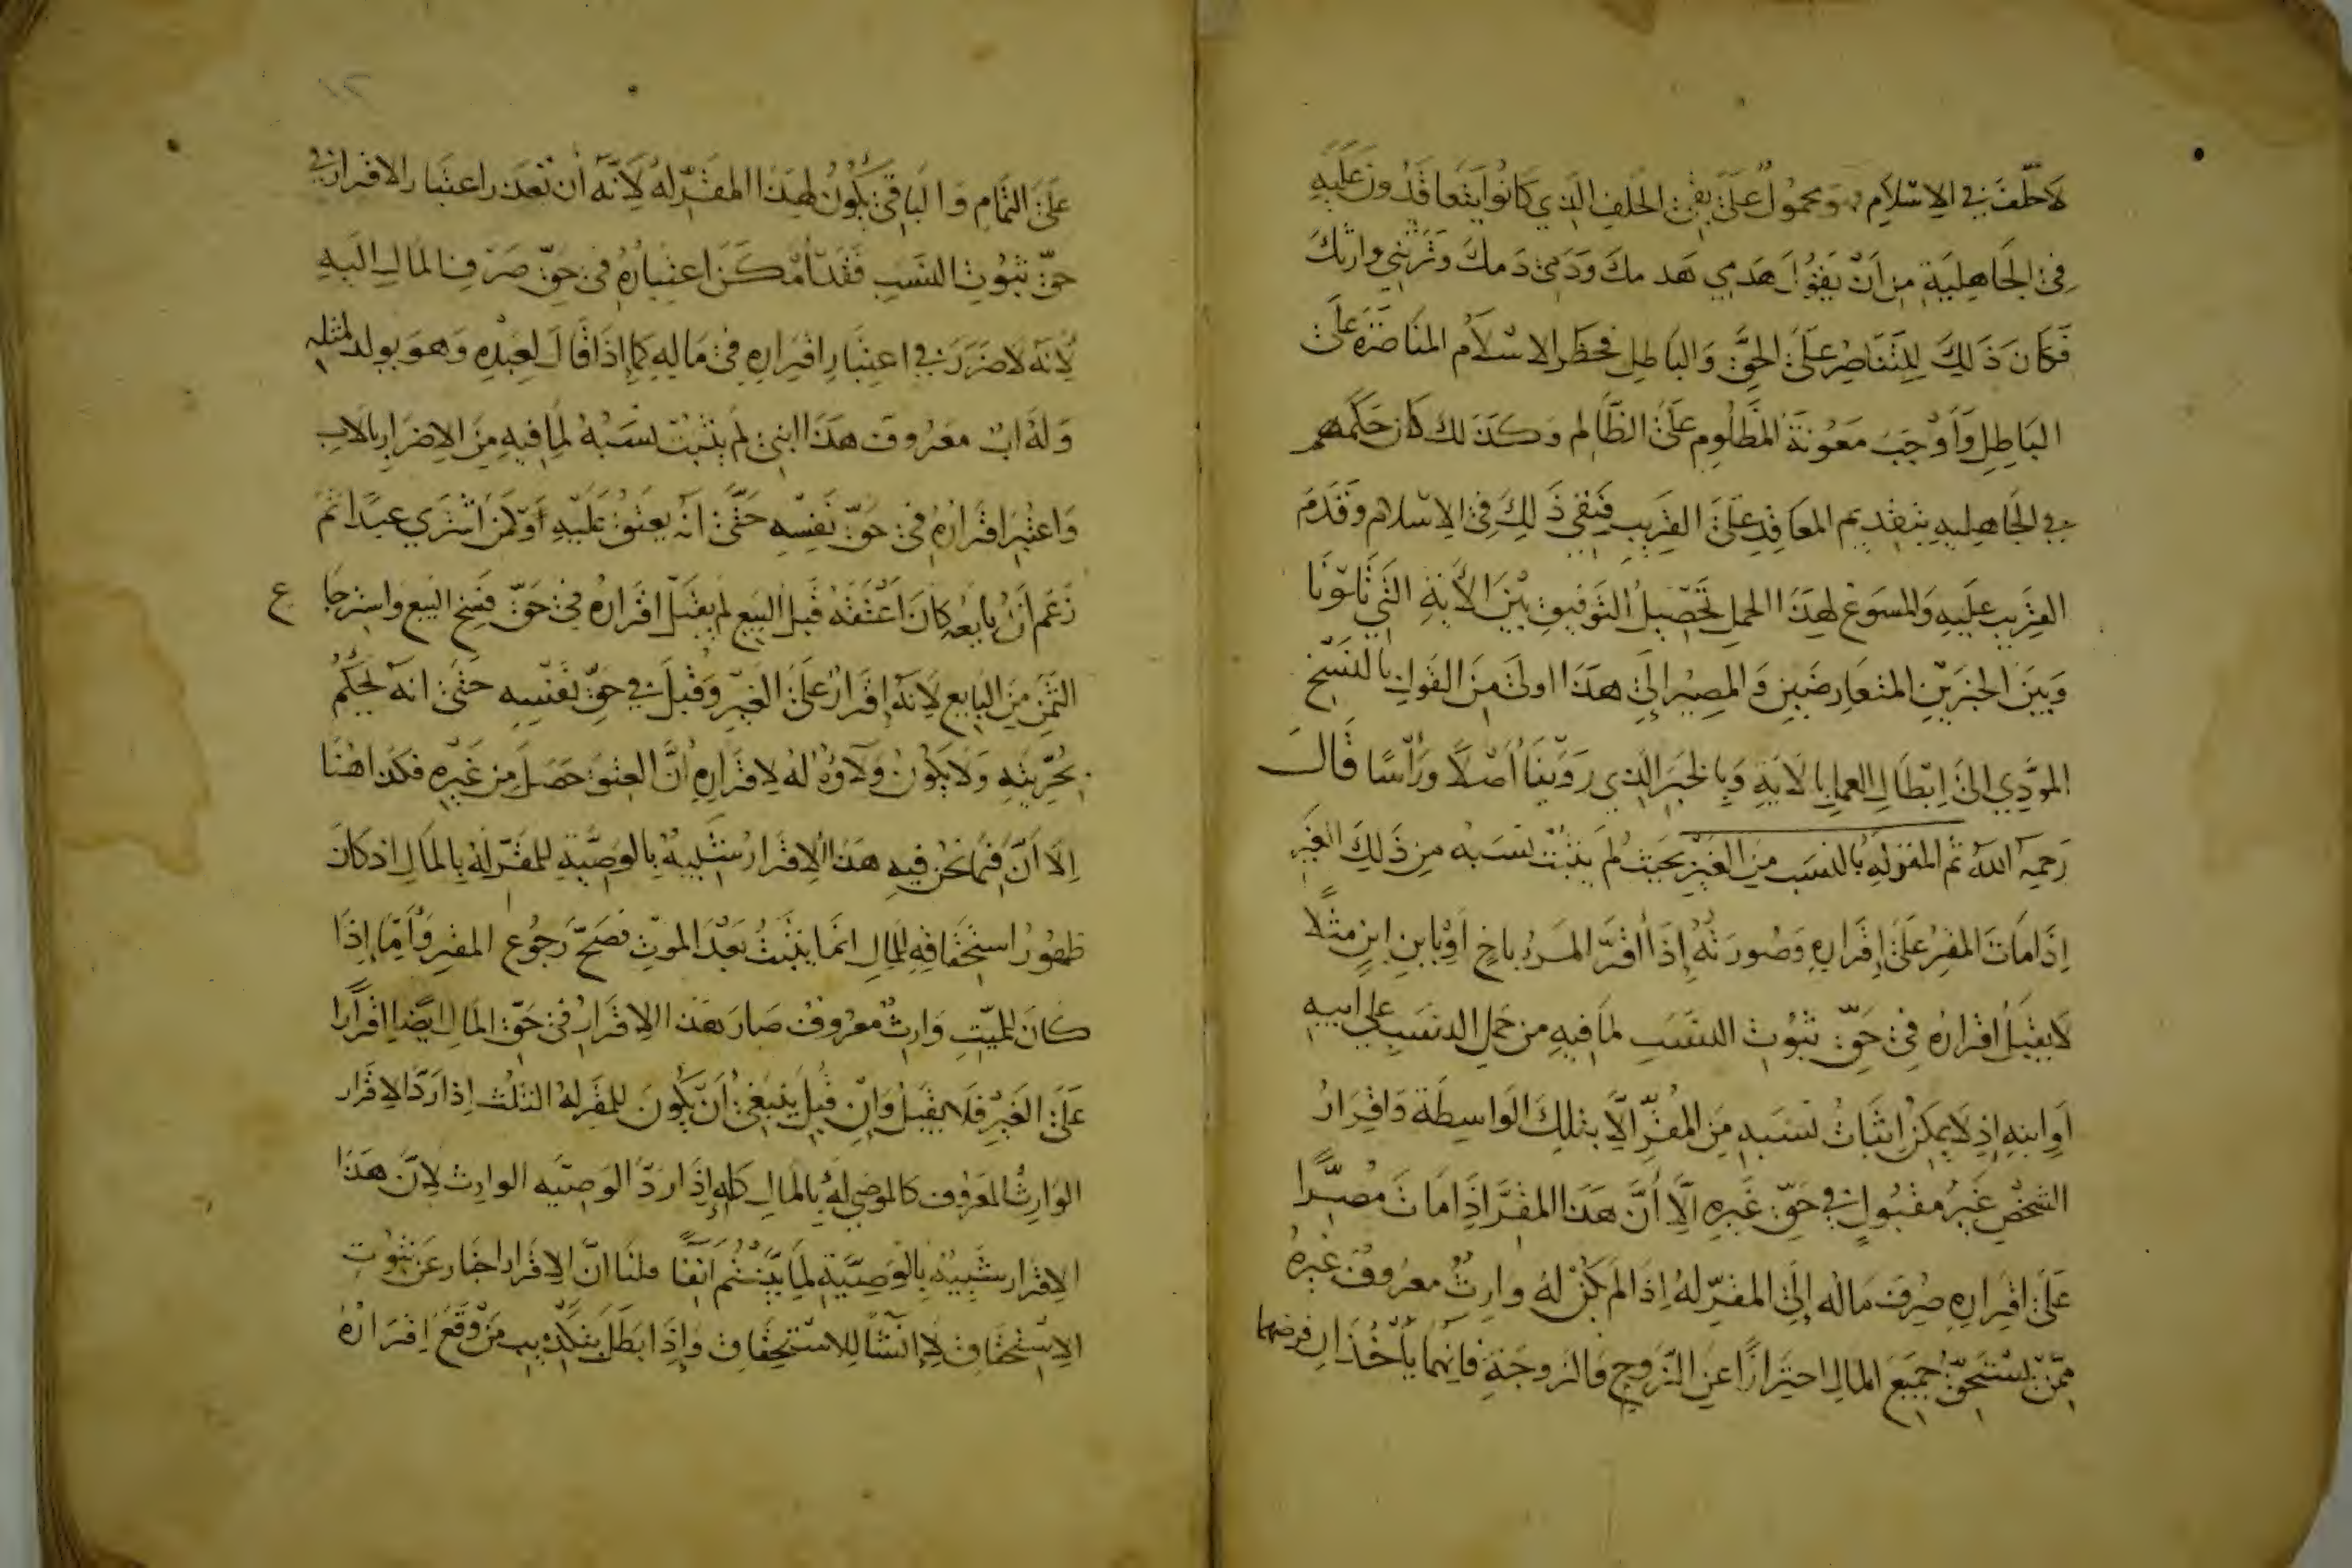 لاحلف في الاسلام ومحمول على نفي الحلف الذي كانوا يتعاقدون عليه
في الجاهلية من ان يقول هدمي هدمك ودمي دمك وترثني وارثك
فكان ذلك للتناصر على الحق والباطل فحظر الاسلام المناصرة على
الباطل واوجب معونة المظلوم على الظالم وكذلك كان حكمهم
في الجاهلية بتقديم المعاقد على القريب فنفي ذلك في الاسلام وقدم
القريب عليه والمسوغ لهذا الحمل تحصيل التوفيق بين الاية التي تلونا
وبين الخبرين المتعارضين والمصير الى هذا اولى من القول بالنسخ
المودي الى ابطال العمل بالاية وبالخبر الذي روينا اصلا ورأسا قال
رحمه الله ثم المقر له بالنسب من الغير بحيث لم يثبت نسبه من ذلك الغير
اذا مات المقر على اقراره وصورته اذا اقر المرء باخ او بابن ابن مثلا
لا يقبل اقراره في حق ثبوت النسب لما فيه من حمل النسب على ابيه
او ابنه اذ لا يمكن اثبات نسبه من المقر الا بتلك الواسطة واقرار
الشخص غير مقبول في حق غيره الا ان هذا المقر اذا مات مصرا
على اقراره صرف ماله الى المقر له اذا لم يكن له وارث معروف غيره
ممن يستحق جميع المال احترازا عن الزوج والزوجة فانهما يأخذان فرضهما
على التمام والباقي يكون لهذا المقر له لانه ان تعذر اعتبار الاقرار في
حق ثبوت النسب فقد امكن اعتباره في حق صرف المال اليه
لانه لا ضرر في اعتبار اقراره في ماله كما اذا قال لعبده وهو يولد لمثله
وله اب معروف هذا ابني لم يثبت نسبه لما فيه من الاضرار بالاب
واعتبر اقراره في حق نفسه حتى انه يعتق عليه او كمن اشتري عبدا ثم
زعم ان بايعه كان اعتقه قبل البيع لم يقبل اقراره في حق فسخ البيع واسترجا ع
الثمن من البايع لانه اقرار على الغير وقبل في حق نفسه حتى انه يحكم
بحريته ولا يكون ولاؤه له لاقراره ان العتق حصل من غيره فكذا هنا
الا ان فيما نحن فيه هذا الاقرار شبيه بالوصية للمقر له بالمال اذ كان
ظهور استحقاقه للمال انما يثبت بعد الموت فصح رجوع المقر واما اذا
كان للميت وارث معروف صار هذا الاقرار في حق المال ايضا اقرارا
على الغير فلا يقبل وان قبل ينبغي ان يكون للمقر له الثلث اذا رد الاقرار
الوارث المعروف كالموصي له بالمال كله اذا رد الوصيه الوارث لان هذا
الاقرار شبيه بالوصية لما بينتم انفا قلنا ان الاقرار اخبار عن ثبوت
الاستحقاق لا انشا للاستحقاق واذا بطل بتكذيب من وقع اقراره